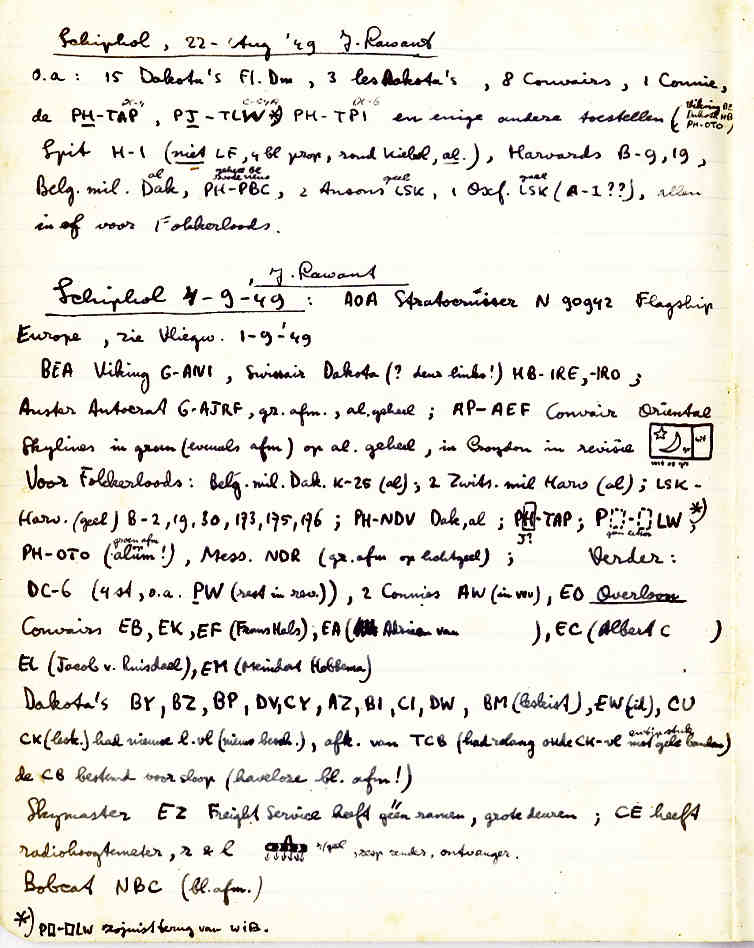 Schiphol, 22- Aug '49 J. Rawant
o.a: 15 Dakota's Fl. Dm, 3 lesdakota's, 8 Convairs, 1 Connie,
DC-4 DC-6 Viking BZ
de PH-TAP, PJ-TLW*) PH-TPI en enige andere toestellen (
PH-OTO)
Spit H-1 (niet LF, 4 bl prop, rond kielvl, al.), Harvards B-9, 19,
al geel geel
Belg. mil. Dak, PH-PBC, 2 Ansons LSK, 1 Oxf. LSK (A-1??), allen
in of voor Fokkerloods.
, J. Rawant
Schiphol 4-9-49 : AOA Stratocruiser N 90942 Flagship
Europe, zie Vliegw. 1-9-'49
BEA Viking G-ANI, Swissair Dakota (? deur links!) HB-IRE, -IRO ;
Auster Autocrat G-AJRF, gr. afm., al. geheel ; AP-AEF Convair Oriental
Skylines in groen (evenals afm) op al. geheel, in Croydon in revisie
wit
Voor Fokkerloods: Belg. mil. Dak. K-25 (al) ; 2 Zwits. mil Harv (al) ; LSK-
Harv. (geel) B-2, 19, 30, 173, 175, 176 ; PH-NDV Dak, al ; PH-TAP ; P - LW *) ;
J?
groen afm
PH-OTO (alum!), Mess. NDR (gr. afm op lichtgeel) ; Verder:
DC-6 (4 st, o.a. PW (rest in rev.)), 2 Connies AW (in rev), ED Overloon
Convairs EB, EK, EF (Frans Hals), EA (Adriaen van ), EC (Albert C )
EL (Jacob v. Ruisdael), EM (Meindert Hobbema)
Dakota's BY, BZ, BP, DV, CY, AZ, BI, CI, DW, BM (leskist), EW (id), CU
CK (lesk.) had nieuwe l. vl (nieuw besch.), afk. van TCB (had zolang oude CK-vl met gele banden)
de CB bestemd voor sloop (haveloze bl. afm!)
Skymaster EZ Freight Service heeft géén ramen, grote deuren ; CE heeft
radiohoogtemeter, r & l , resp zender, ontvanger.
Bobcat NBC (bl. afm.)
*) P - LW zojuist terug van WIA.